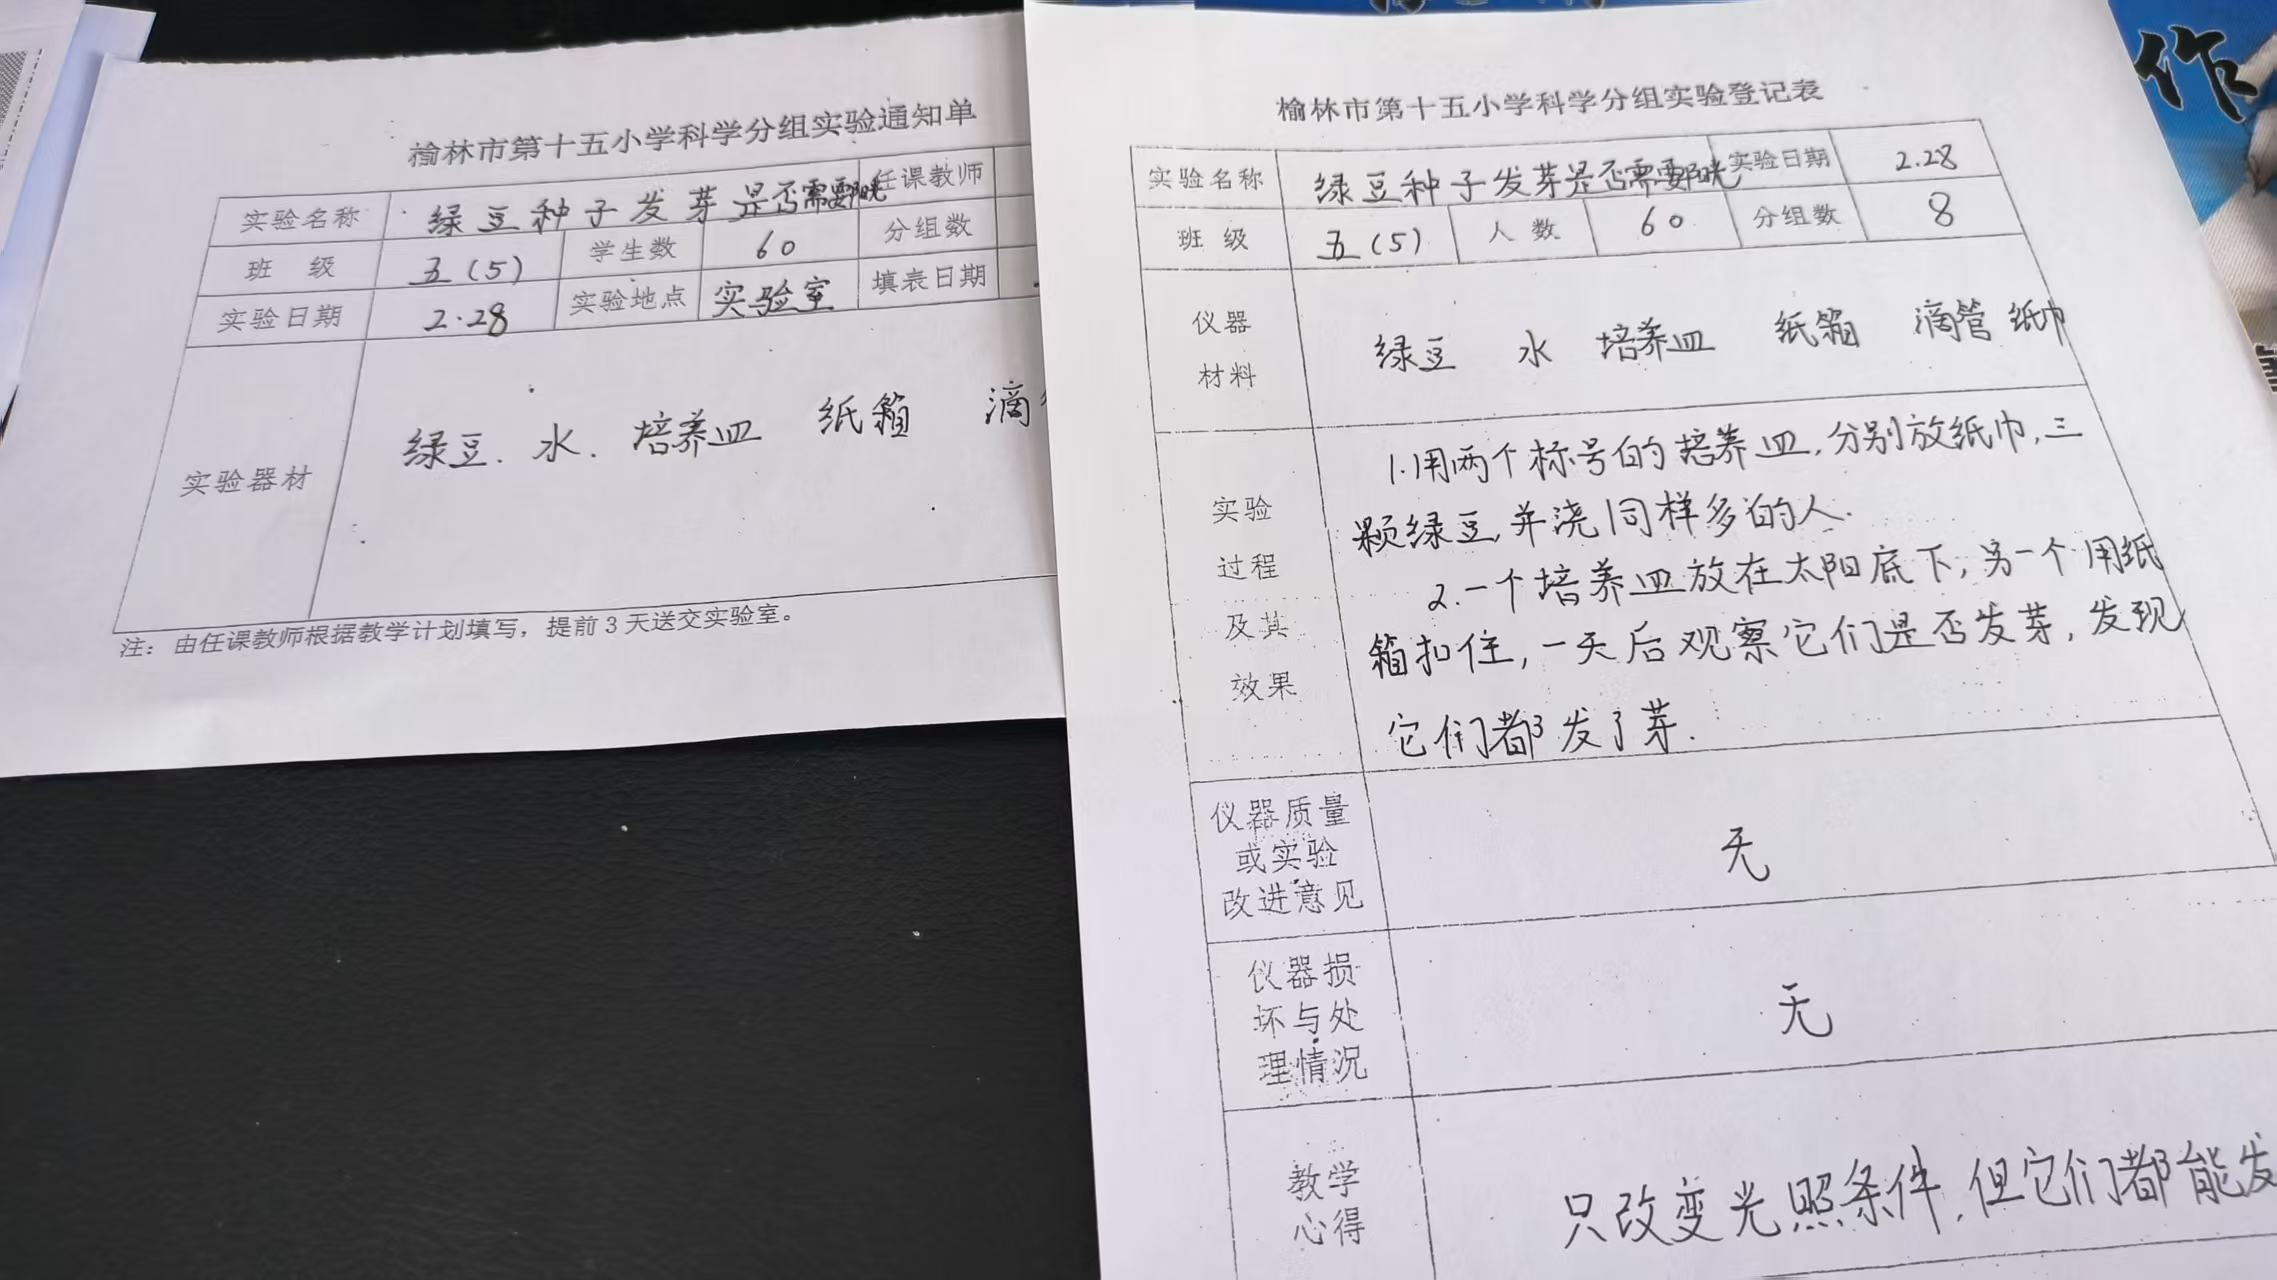 榆林市第十五小学科学分组实验通知单
实验名称 绿豆种子发芽是否需要阳光 任课教师
班 级 五(5) 学生数 60 分组数
实验日期 2.28 实验地点 实验室 填表日期
实验器材 绿豆. 水. 培养皿 纸箱 滴
注：由任课教师根据教学计划填写，提前3天送交实验室。
榆林市第十五小学科学分组实验登记表
实验名称 绿豆种子发芽是否需要阳光 实验日期 2.28
班 级 五(5) 人 数 60 分组数 8
仪器
材料
绿豆 水 培养皿 纸箱 滴管 纸巾
实验
过程
及其
效果
1.用两个标号的培养皿,分别放纸巾,三
颗绿豆,并浇同样多的人.
2.一个培养皿放在太阳底下,另一个用纸
箱扣住,一天后观察它们是否发芽,发现
它们都发了芽.
仪器质量
或实验
改进意见
无
仪器损
坏与处
理情况
无
教学
心得
只改变光照条件,但它们都能发
作